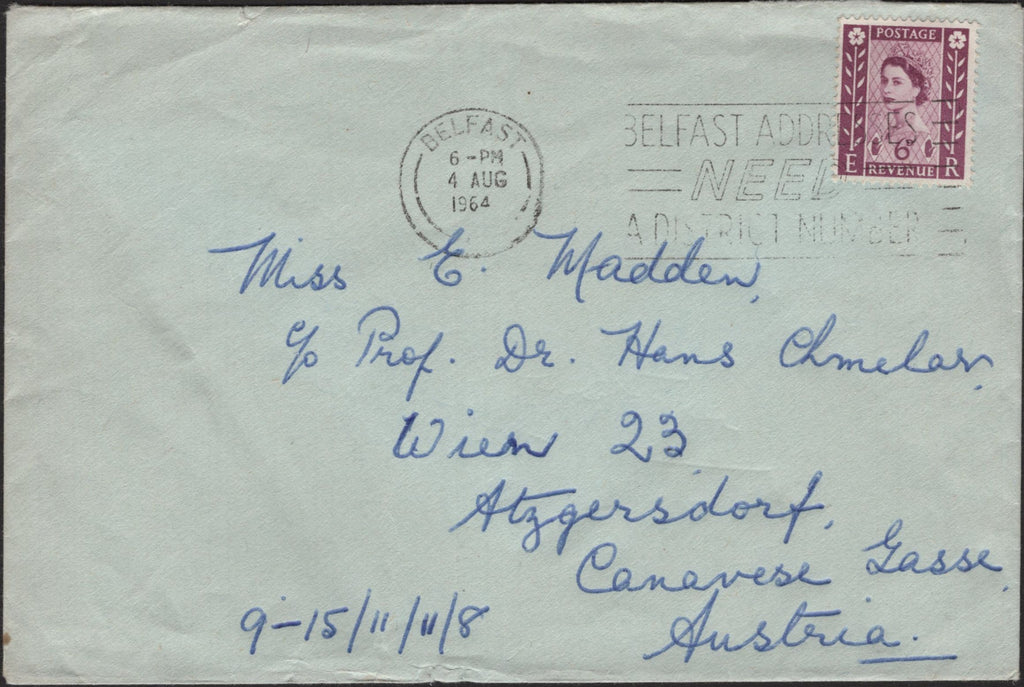 POSTAGE
6D
E REVENUE R
BELFAST
6-PM
4 AUG
1964
BELFAST ADDRESSES
NEED
A DISTRICT NUMBER
Miss E. Madden,
c/o Prof. Dr. Hans Chmelar,
Wien 23
Atzgersdorf,
Canavese Gasse,
9-15/11/11/8
Austria.